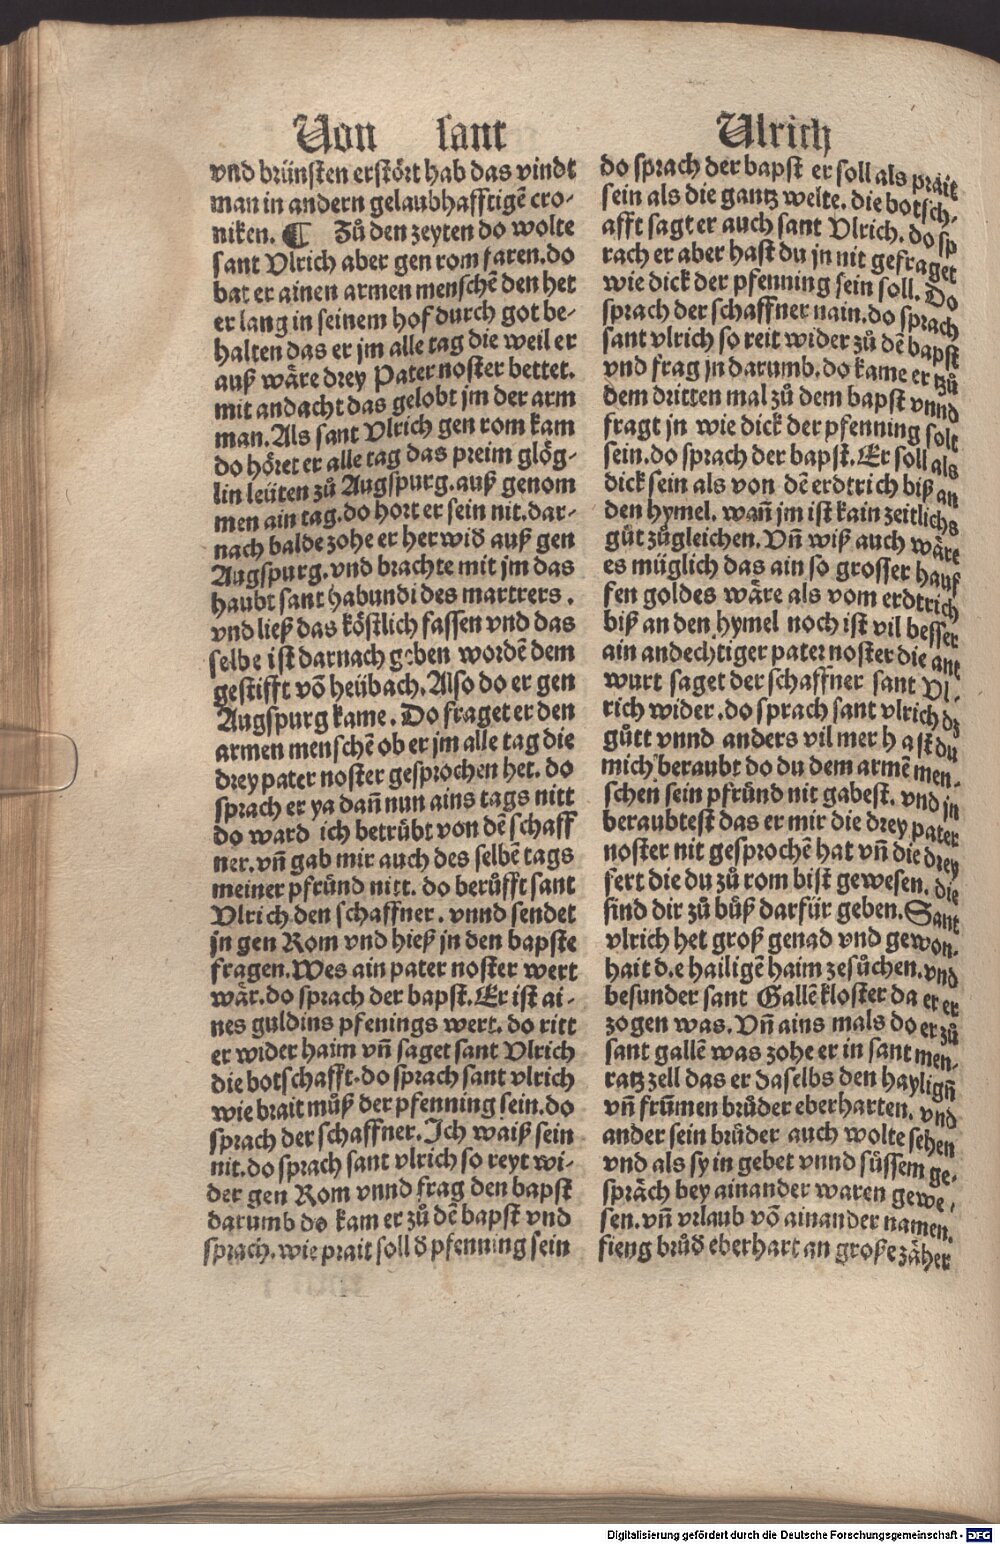 Von sant Ulrich
vnd brünsten erstört hab das vindt
man in andern gelaubhafftigē cro-
niken. ¶ Zů den zeyten do wolte
sant Vlrich aber gen rom faren. do
bat er ainen armen menschē den het
er lang in seinem hof durch got be-
halten das er jm alle tag die weil er
auß wäre drey Pater noster bettet.
mit andacht das gelobt jm der arm
man. Als sant Vlrich gen rom kam
do höret er alle tag das preim glög-
lin leüten zů Augspurg. auß genom
men ain tag. do hort er sein nit. dar-
nach balde zohe er her wid auß gen
Augspurg. vnd brachte mit jm das
haubt sant habundi des martrers.
vnd ließ das köstlich fassen vnd das
selbe ist darnach geben wordē dem
gestifft vō heübach. Also do er gen
Augspurg kame. Do fraget er den
armen menschē ob er jm alle tag die
drey pater noster gesprochen het. do
sprach er ya dañ nun ains tags nitt
do ward ich betrůbt von dē schaff
ner. vñ gab mir auch des selbē tags
meiner pfrůnd nitt. do berůfft sant
Vlrich den schaffner. vnnd sendet
jn gen Rom vnd hieß jn den bapste
fragen. Wes ain pater noster wert
wär. do sprach der bapst. Er ist ai-
nes guldins pfenings wert. do ritt
er wider haim vñ saget sant Vlrich
die botschafft. do sprach sant vlrich
wie brait můß der pfenning sein. do
sprach der schaffner. Ich waiß sein
nit. do sprach sant vlrich so reyt wi-
der gen Rom vnnd frag den bapst
darumb do kam er zů dē bapst vnd
sprach. wie prait soll đ pfenning sein
do sprach der bapst er soll als präit
sein als die gantz welte. die botsch-
afft sagt er auch sant Vlrich. do sp
rach er aber hast du jn nit gefraget
wie dick der pfenning sein soll. Do
sprach der schaffner nain. do sprach
sant vlrich so reit wider zů dē bapst
vnd frag jn darumb. do kame er tzů
dem dritten mal zů dem bapst vnnd
fragt jn wie dick der pfenning solt
sein. do sprach der bapst. Er soll als
dick sein als von dē erdtrich biß an
den hymel. wañ jm ist kain zeitlichs
gůt zůgleichen. Vñ wiß auch wäre
es müglich das ain so grosser hauf
fen goldes wäre als vom erdtrich
biß an den hymel noch ist vil besser
ain andechtiger pater noster die ant
wurt saget der schaffner sant Vl-
rich wider. do sprach sant vlrich dz
gůtt vnnd anders vil mer hast du
mich beraubt do du dem armē men-
schen sein pfrůnd nit gabest. vnd jn
beraubtest das er mir die drey pater
noster nit gesprochē hat vñ die drey
fert die du zů rom bist gewesen. die
sind dir zů bůß darfür geben. Sant
vlrich het groß genad vnd gewon-
hait d.e hailigē haim zesůchen. vnd
besunder sant Gallē kloster da er er
zogen was. Vñ ains mals do er zů
sant gallē was zohe er in sant men-
ratz zell das er daselbs den hayligñ
vñ frum̄en brůder eberharten. vnd
ander sein brůder auch wolte sehen
vnd als sy in gebet vnnd süssem ge-
spräch bey ainander waren gewe-
sen. vñ vrlaub vō ainander namen.
fieng brůđ eberhart an große zäher
Digitalisierung gefördert durch die Deutsche Forschungsgemeinschaft - DFG